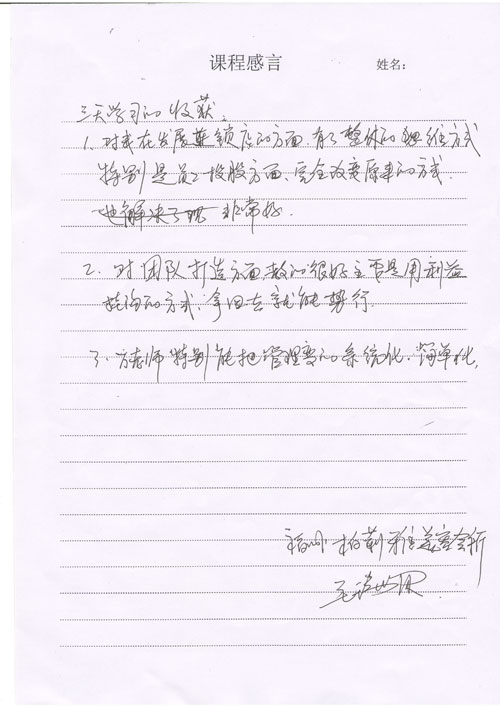 课程感言 姓名：
三天学习的收获。
1、对我在发展连锁店的方面，有了整体的思维方式
特别是员工投股方面、完全改变原来的方式.
也解决了 非常好.
2、对团队打造方面教的很好主要是用利益
的方式、拿回去就能 行.
3、方老师特别能把管理变的系统化、简单化,
福州 柏莉雅美容会所